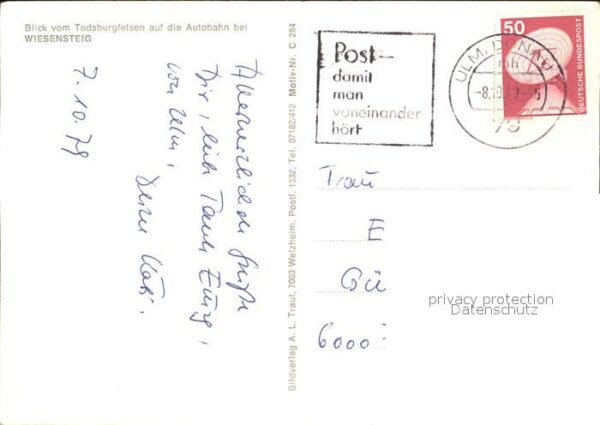 Blick vom Todsburgfelsen auf die Autobahn bei
WIESENSTEIG
7.10.79
Allerherzlichste Grüße
Dir, liebe Tante Emmy,
von Ulm,
Deine Käti.
Bildverlag A. L. Traut, 7063 Welzheim, Postf. 1332, Tel. 07182/412 Motiv-Nr. C 284
Post-
damit
man
voneinander
hört
ULM, DONAU
-8.10.79
79
50
DEUTSCHE BUNDESPOST
Frau
E
6000
privacy protection
Datenschutz